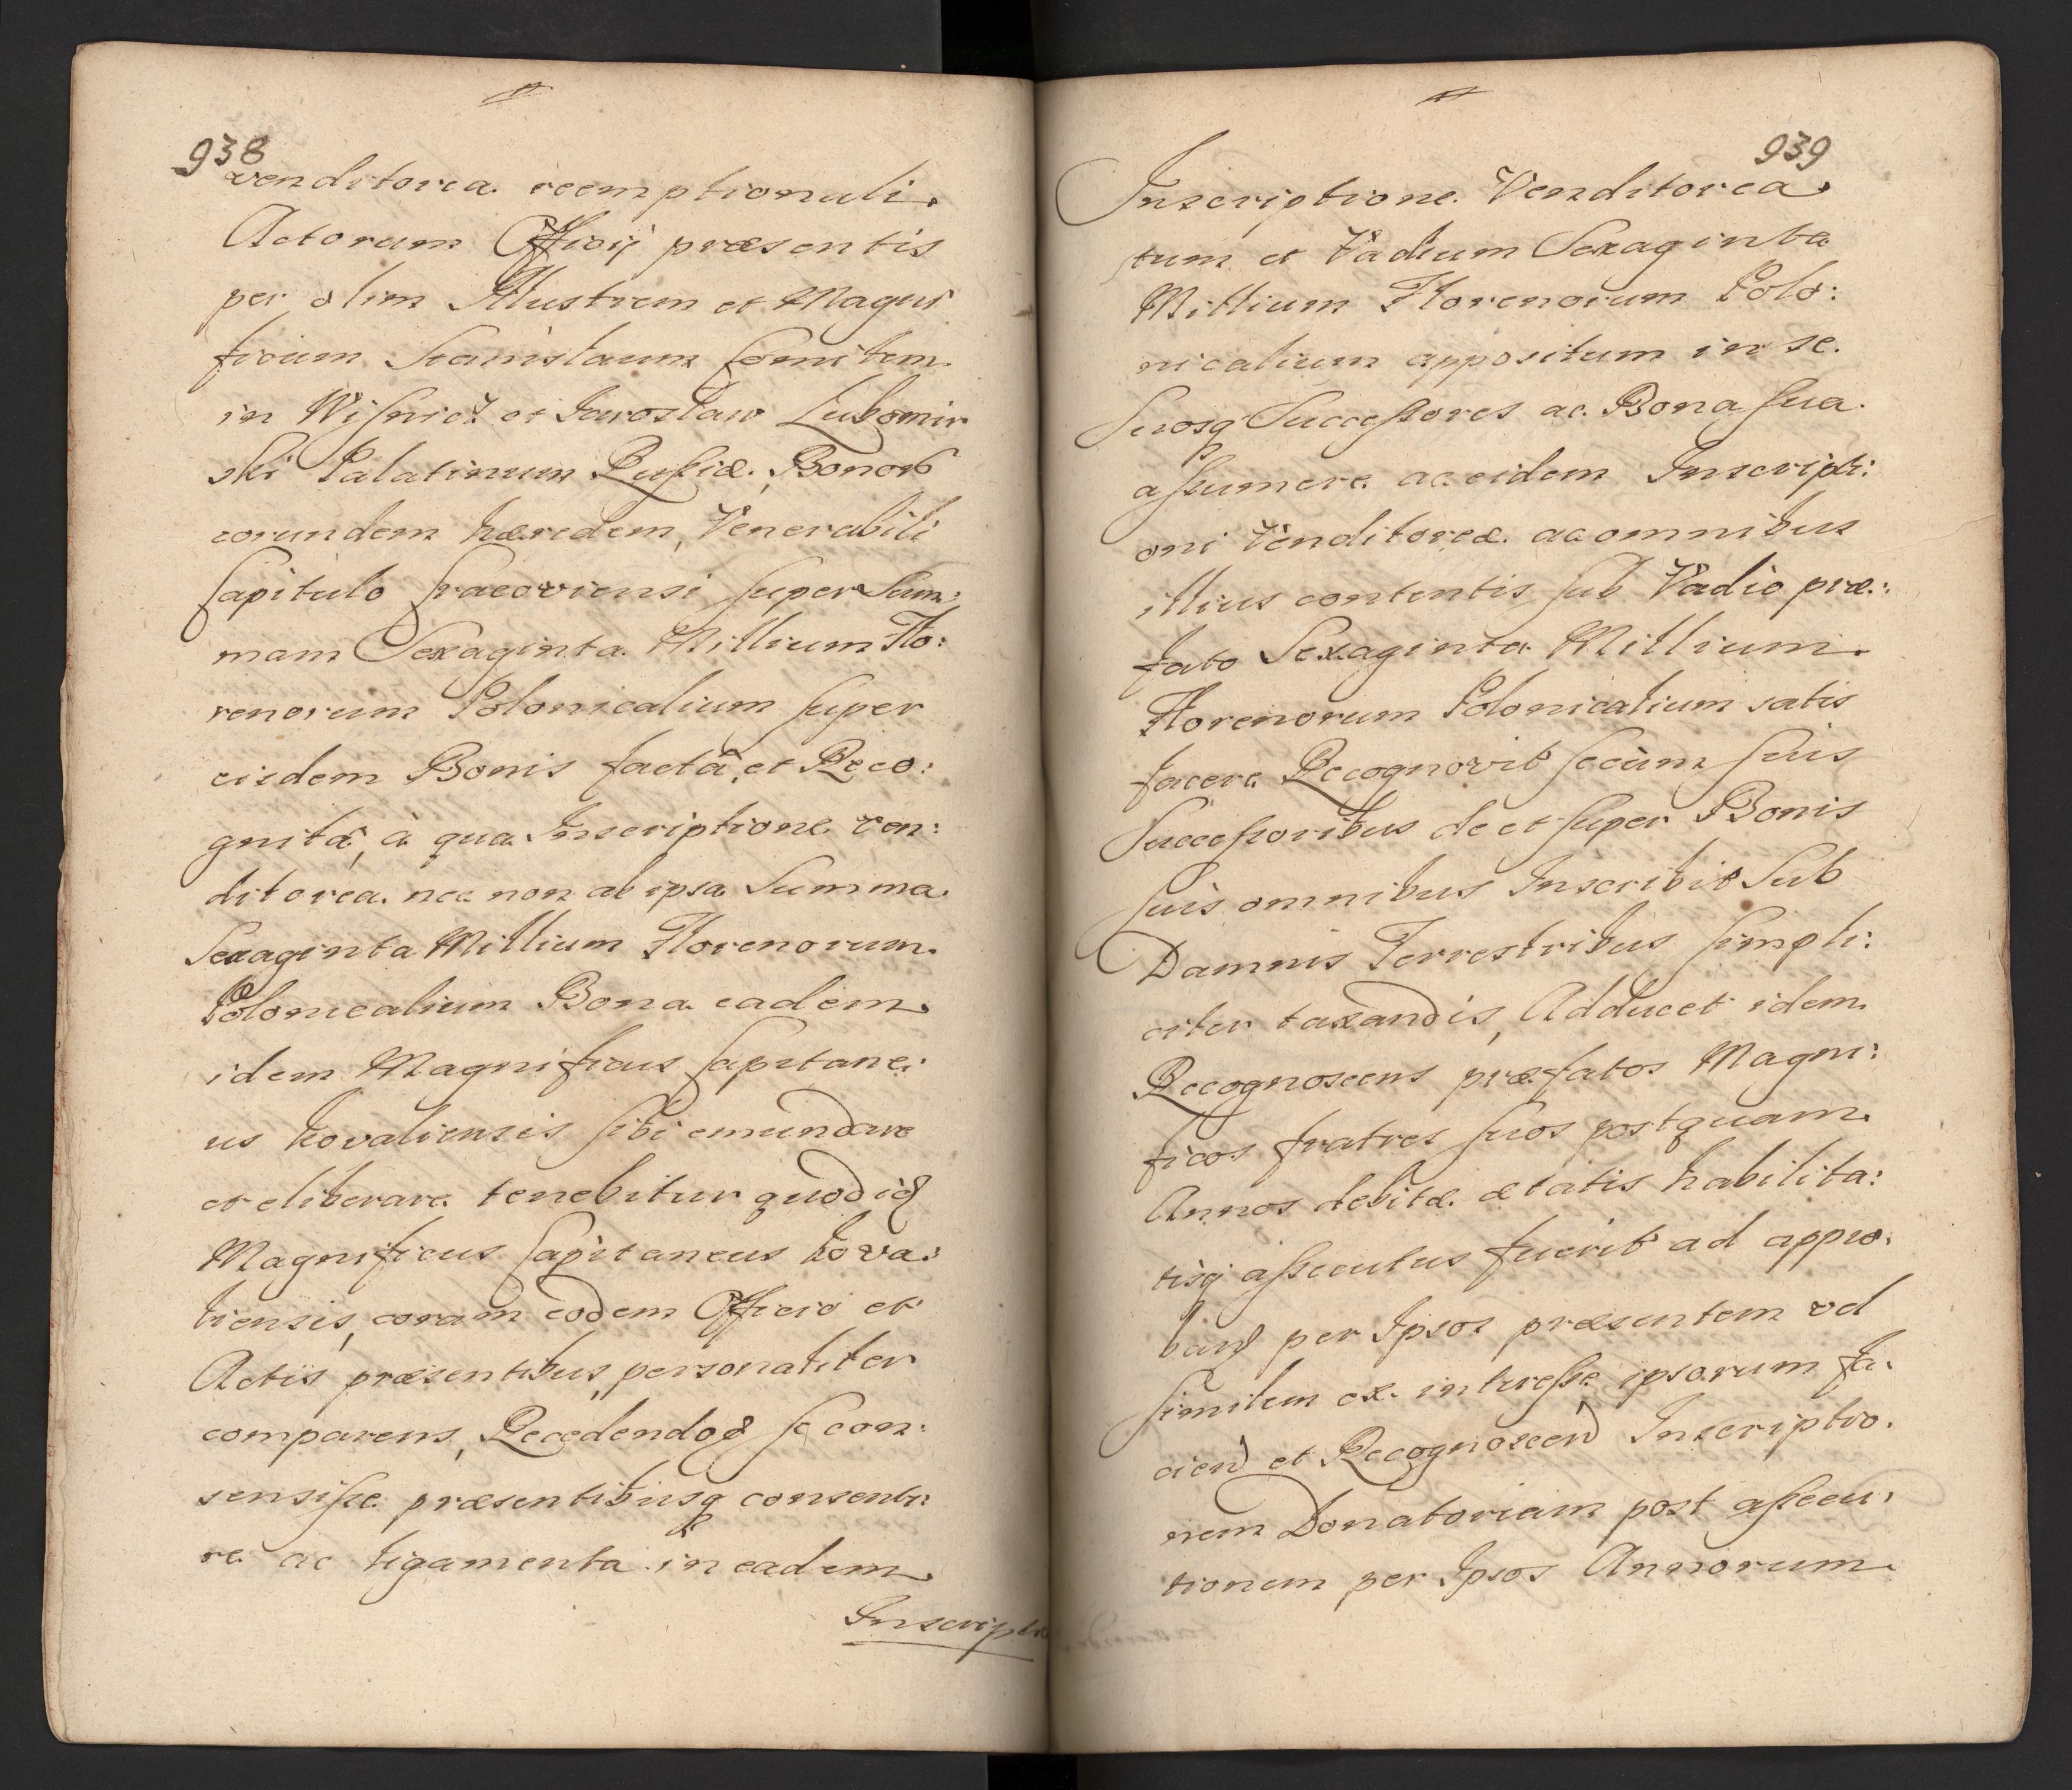 938
venditorea reemptionali
Actorum Officij præsentis
per olim Illustrem et Magni
ficum Stanislaum Comitem
in Wiſnicz et Iaroslaw Lubomir
ski Palatinum Ruſsiæ, Bonorũ
eorundem hæredem, Venerabili
Capitulo Cracoviensi ſuper Sum:
mam Sexaginta Millium Flo:
renorum Polonicalium ſuper
eisdem Bonis factâ, et Reco:
gnitâ, à qua Inscriptione ven:
ditorea nec non ab ipsa Summa
Sexaginta Millium Florenorum
Polonicalium Bona eadem
idem Magnificus Capitane:
us Kovaliensis ſibi emundare
et eliberare tenebitur quodq
Magnificus Capitaneus Kova:
liensis, coram eodem Officio et
Actis præsentibus, personaliter
comparens, Recedendoq ſe con:
sensiſse præsentibusq consenti:
re ac ligamenta in eadem
Inscriptio
939
Inscriptione Venditorea
tum et Vadium Sexaginta
Millium Florenorum Polo:
nicalium appositum in se
ſuosq Succeſsores ac Bona ſua
aſsumere ac eidem Inscripti:
oni Venditoreæ ac omnibus
illius contentis ſub Vadio præ:
fato Sexaginta Millium
Florenorum Polonicalium satis
facere Recognovit ſecum ſuis
Succeſsoribus de et ſuper Bonis
ſuis omnibus Inscribit Sub
Damnis Terrestribus ſimpli:
citer taxandis, Adducet idem
Recognoscens præfatos Magni:
ficos fratres ſuos postquam
Annos debitæ ætatis habilita:
tisq aſsecutus fuerit ad appro:
band per Ipsos præsentem vel
ſimilem ex intereſse ipsorum fa:
ciend et Recognoscend Inscriptio:
nem Donatoriam post aſsecu:
tionem per Ipsos Annorum